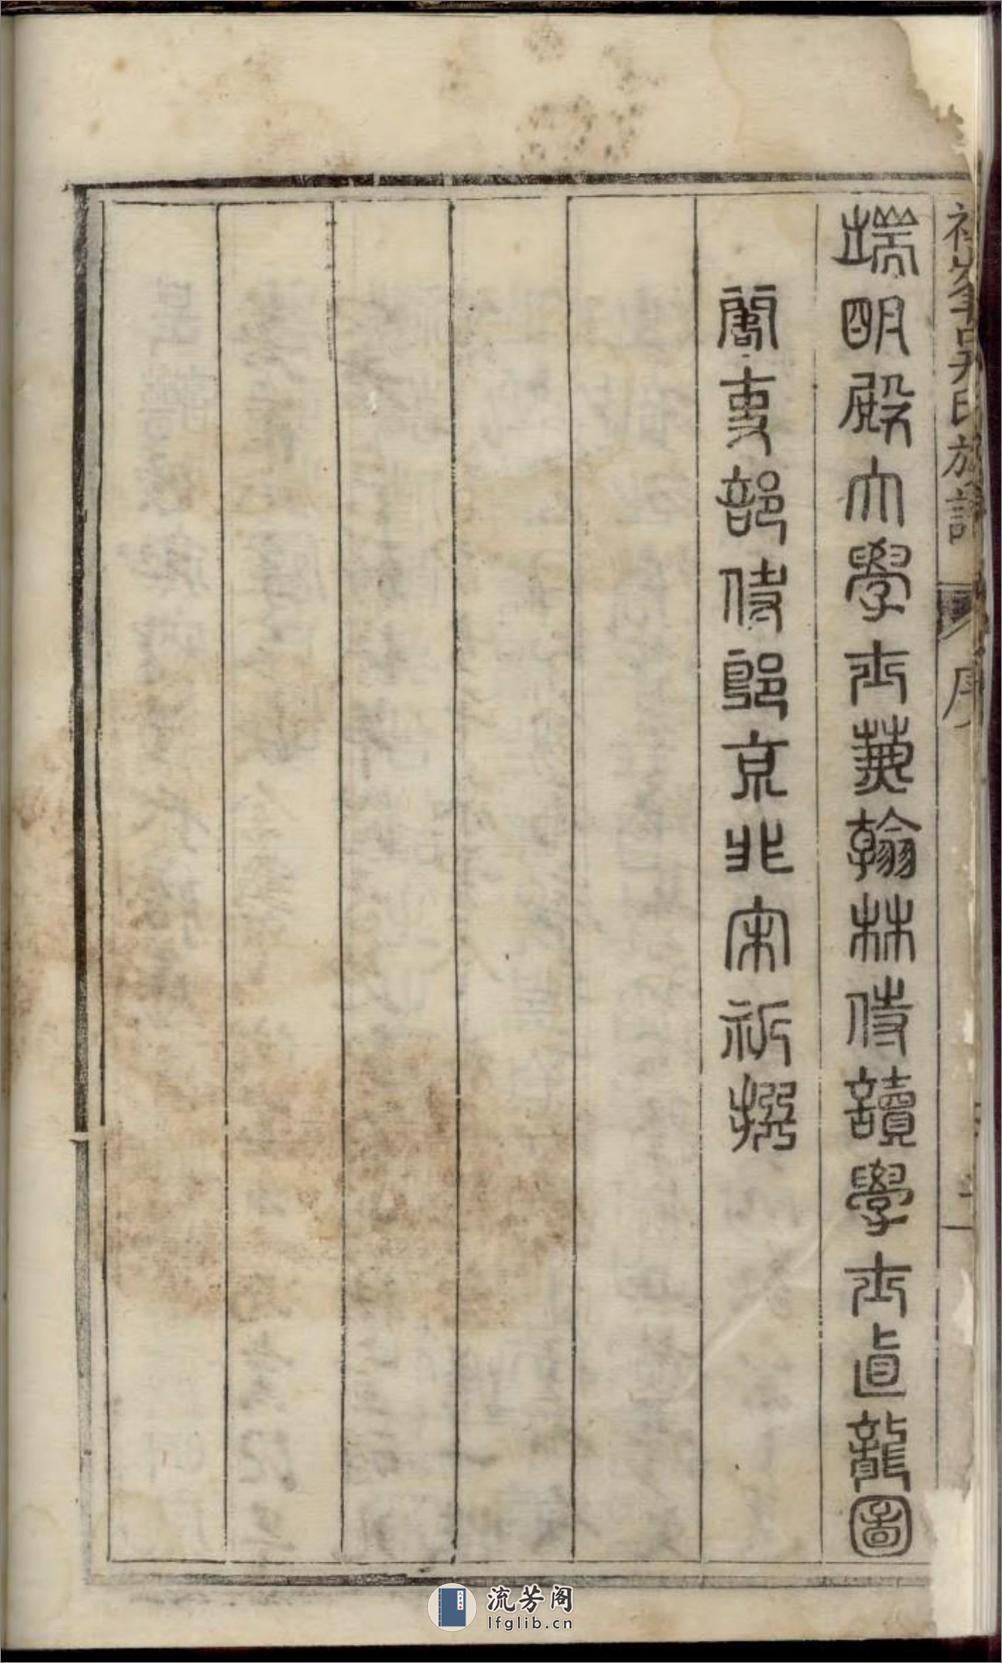 氏族譜
序
端明殿大學士兼翰林侍讀學士直龍圖
閣吏部侍郎京兆宋祁撰
流芳阁
lfglib.cn